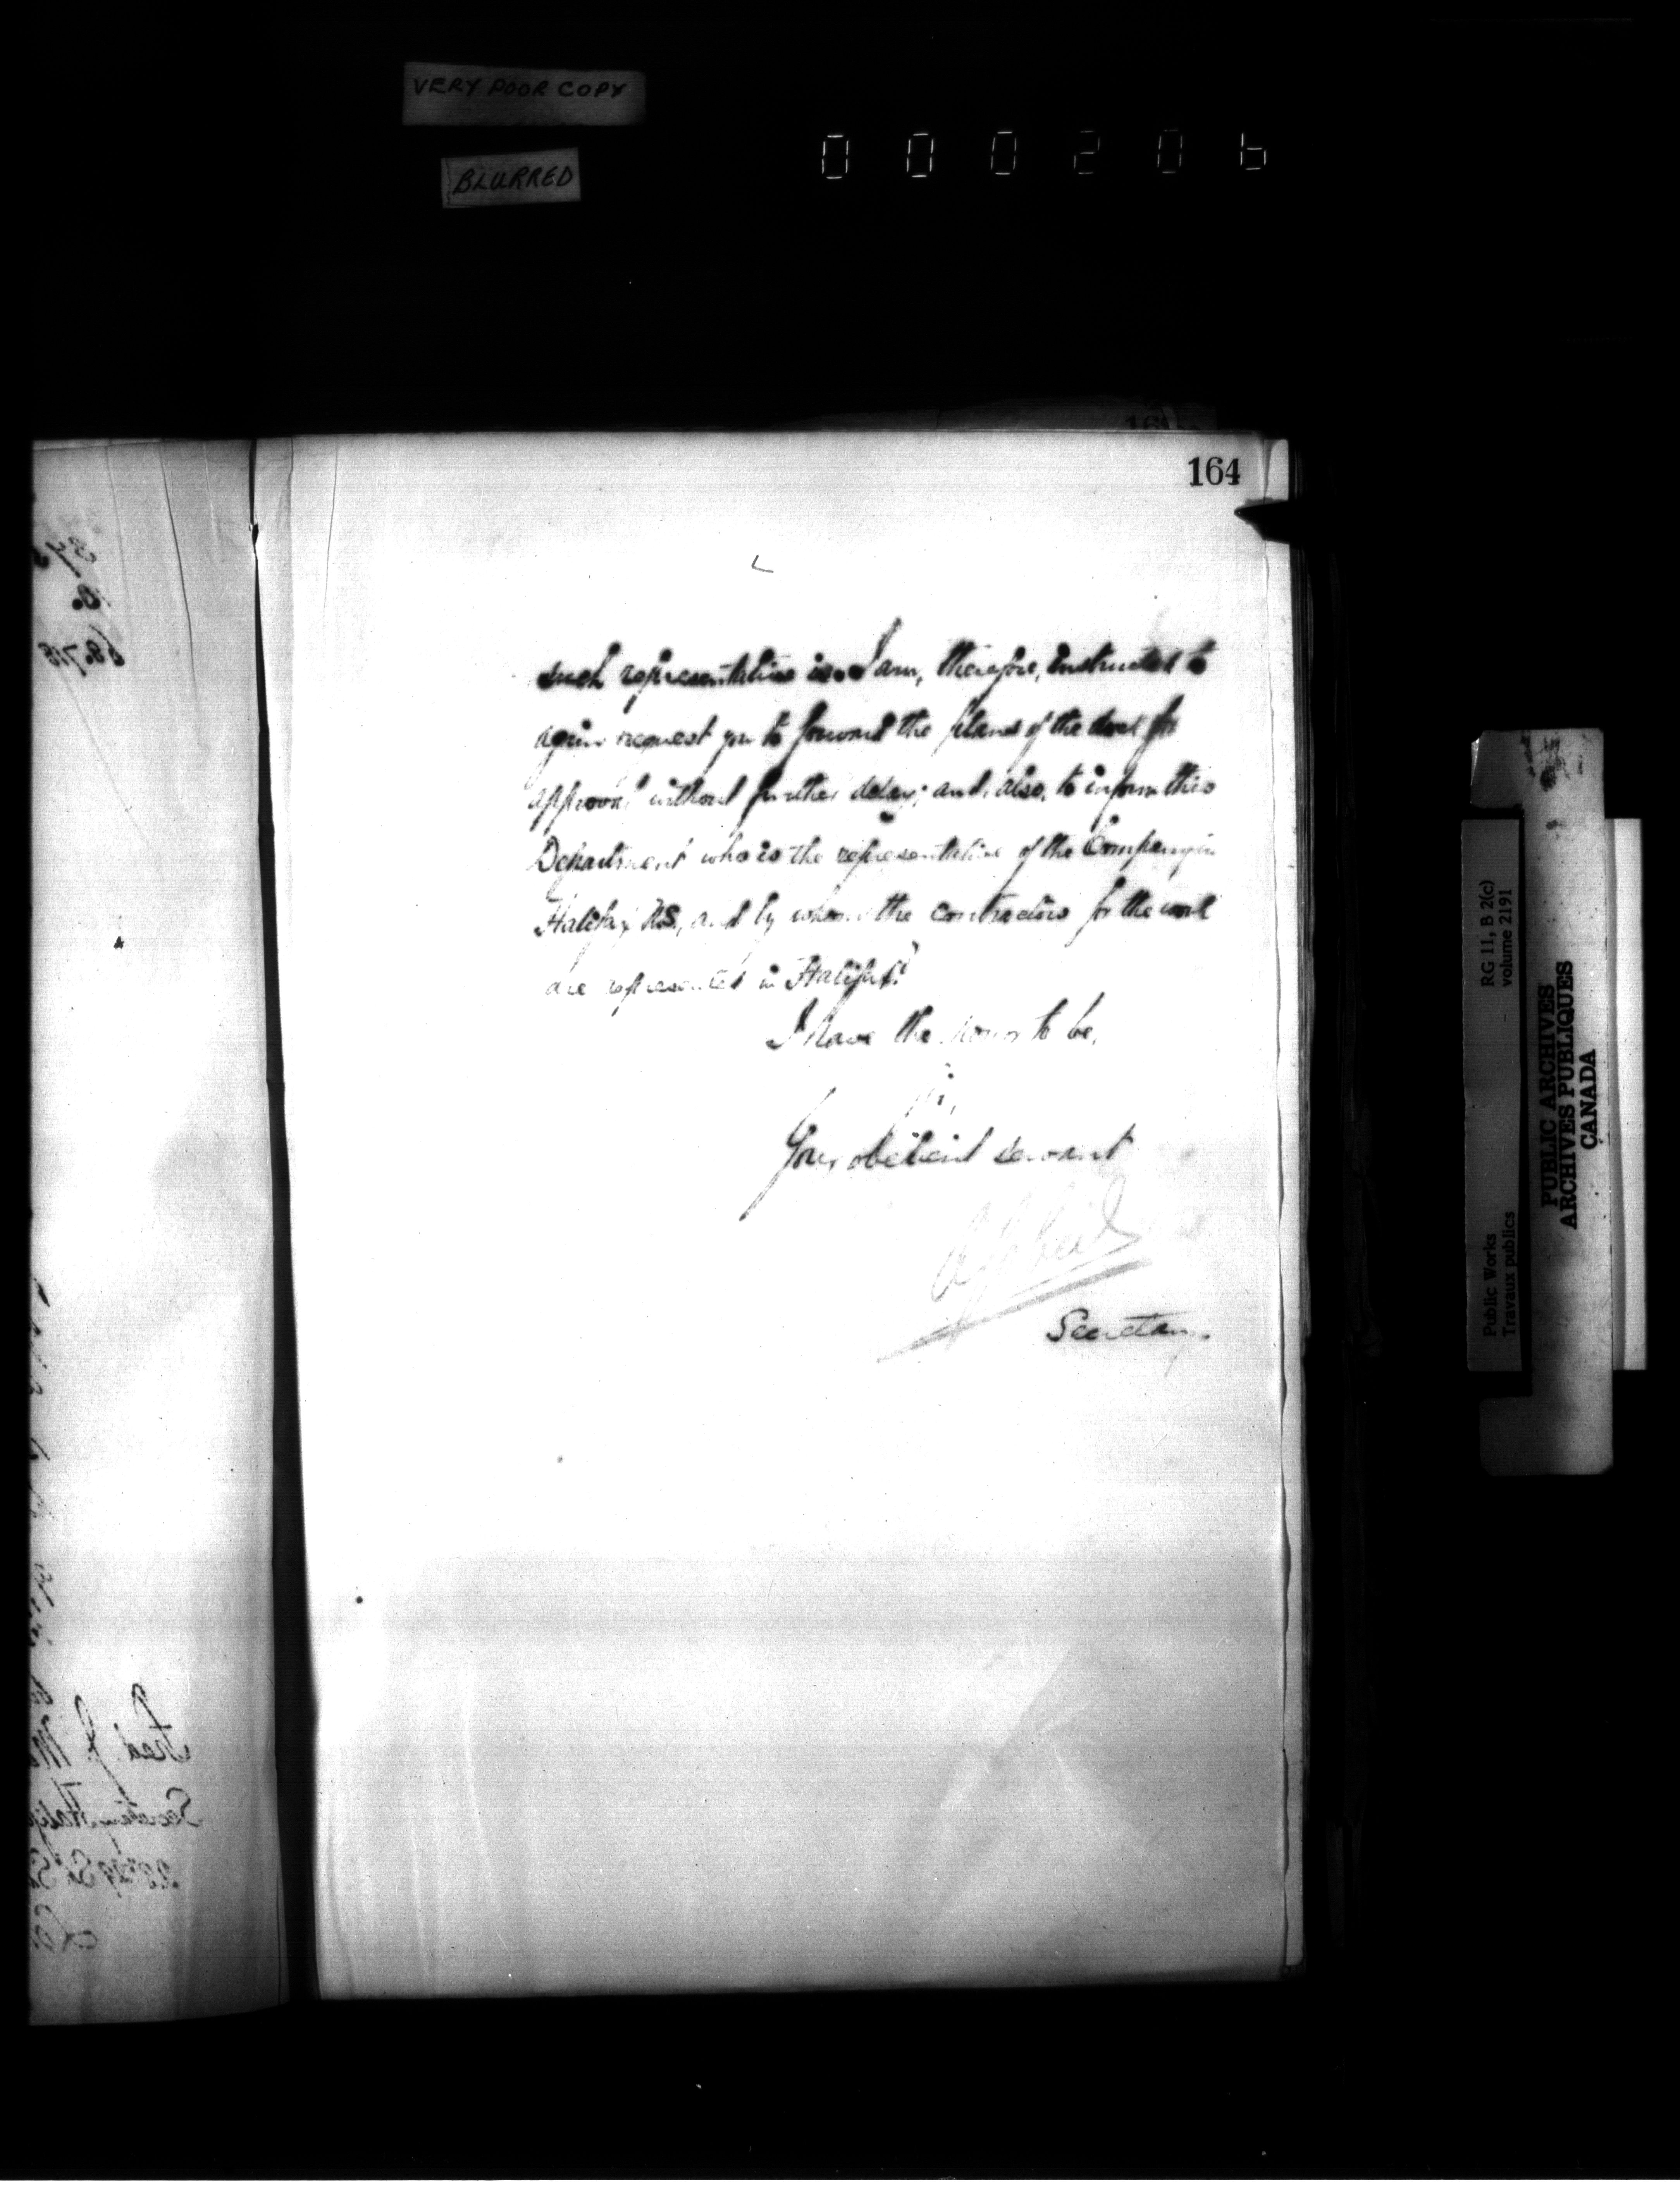 VERY POOR COPY
BLURRED
000206
164
such representative is. I am, therefore, instructed to
again request you to forward the plans of the dock for
approval without further delay; and, also, to inform this
Department who is the representative of the Company in
Halifax, N.S., and by whom the contractors for the work
are represented in Halifax?
I have the honor to be,
Sir,
Your obedient servant
Secretary.
Fred J.
Secretary
RG 11, B 2(c)
volume 2191
Public Works
Travaux publics
PUBLIC ARCHIVES
ARCHIVES PUBLIQUES
CANADA